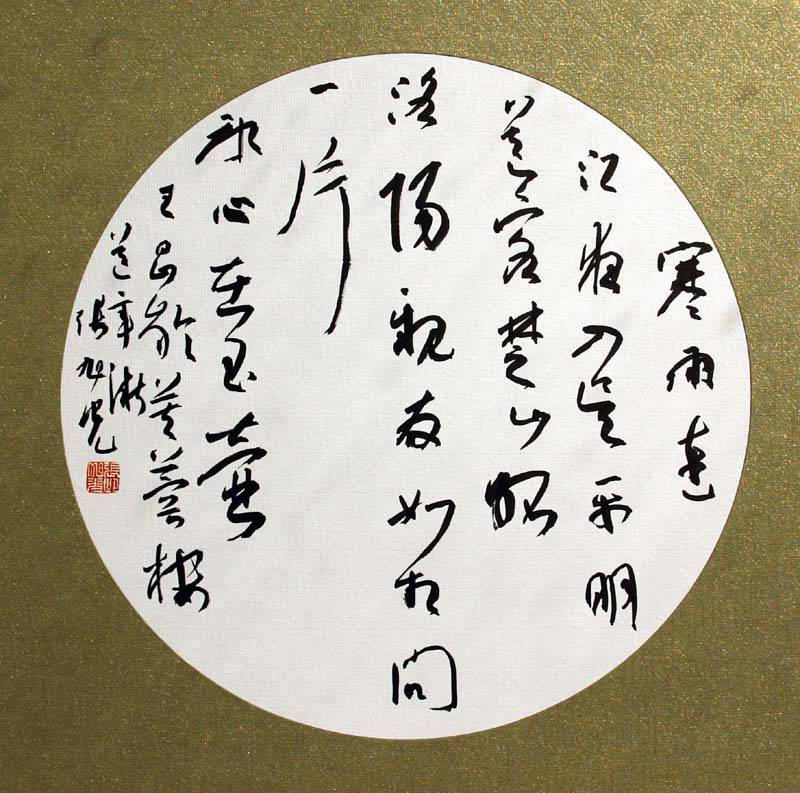 寒雨連
江夜入吴平明
送客楚山孤
洛陽親友如相问
一片
冰心在玉壶
王昌龄芙蓉楼
送辛渐
張旭光